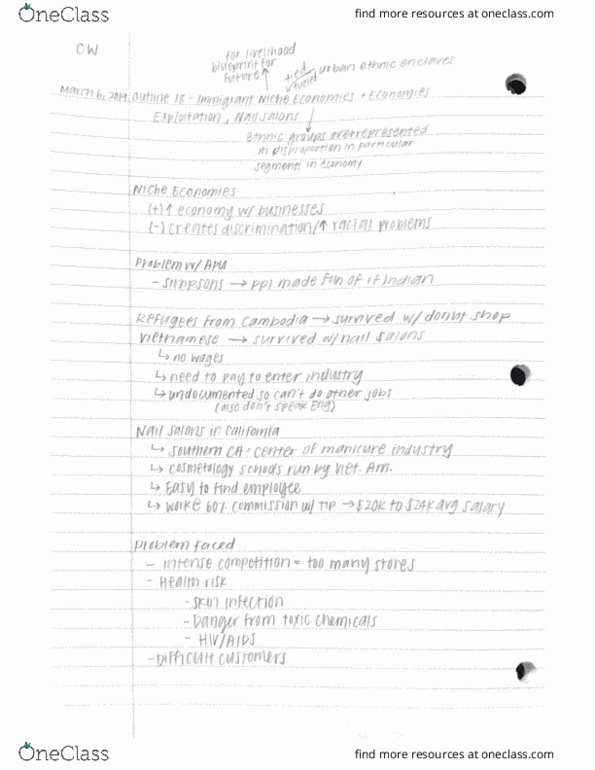 OneClass
find more resources at oneclass.com
CW
for livelihood
blueprint for
future
tied
fueled
urban ethnic enclaves
March 6, 2019 Outline 18 - Immigrant Niche Economies + Economies
Exploitation, Nail salons
ethnic groups overrepresented
in disproportion in particular
segments in economy
Niche Economies
(+) ↑ economy w/ businesses
(-) creates discrimination/↑ racial problems
Problem w/ Apu
- Simpsons → ppl made fun of it Indian
Refugees from Cambodia → survived w/ donut shop
Vietnamese → survived w/ nail salons
↳ no wages
↳ need to pay to enter industry
↳ undocumented so can't do other jobs
(also don't speak Eng)
Nail salons in California
↳ Southern CA = center of manicure industry
↳ cosmetology schools run by Viet. Am.
↳ Easy to find employee
↳ work @ 60% commission w/ tip → $20K to $24K avg salary
Problem faced
- intense competition = too many stores
- Health risk
- skin infection
- Danger from toxic chemicals
- HIV/AIDS
- Difficult customers
OneClass
find more resources at oneclass.com